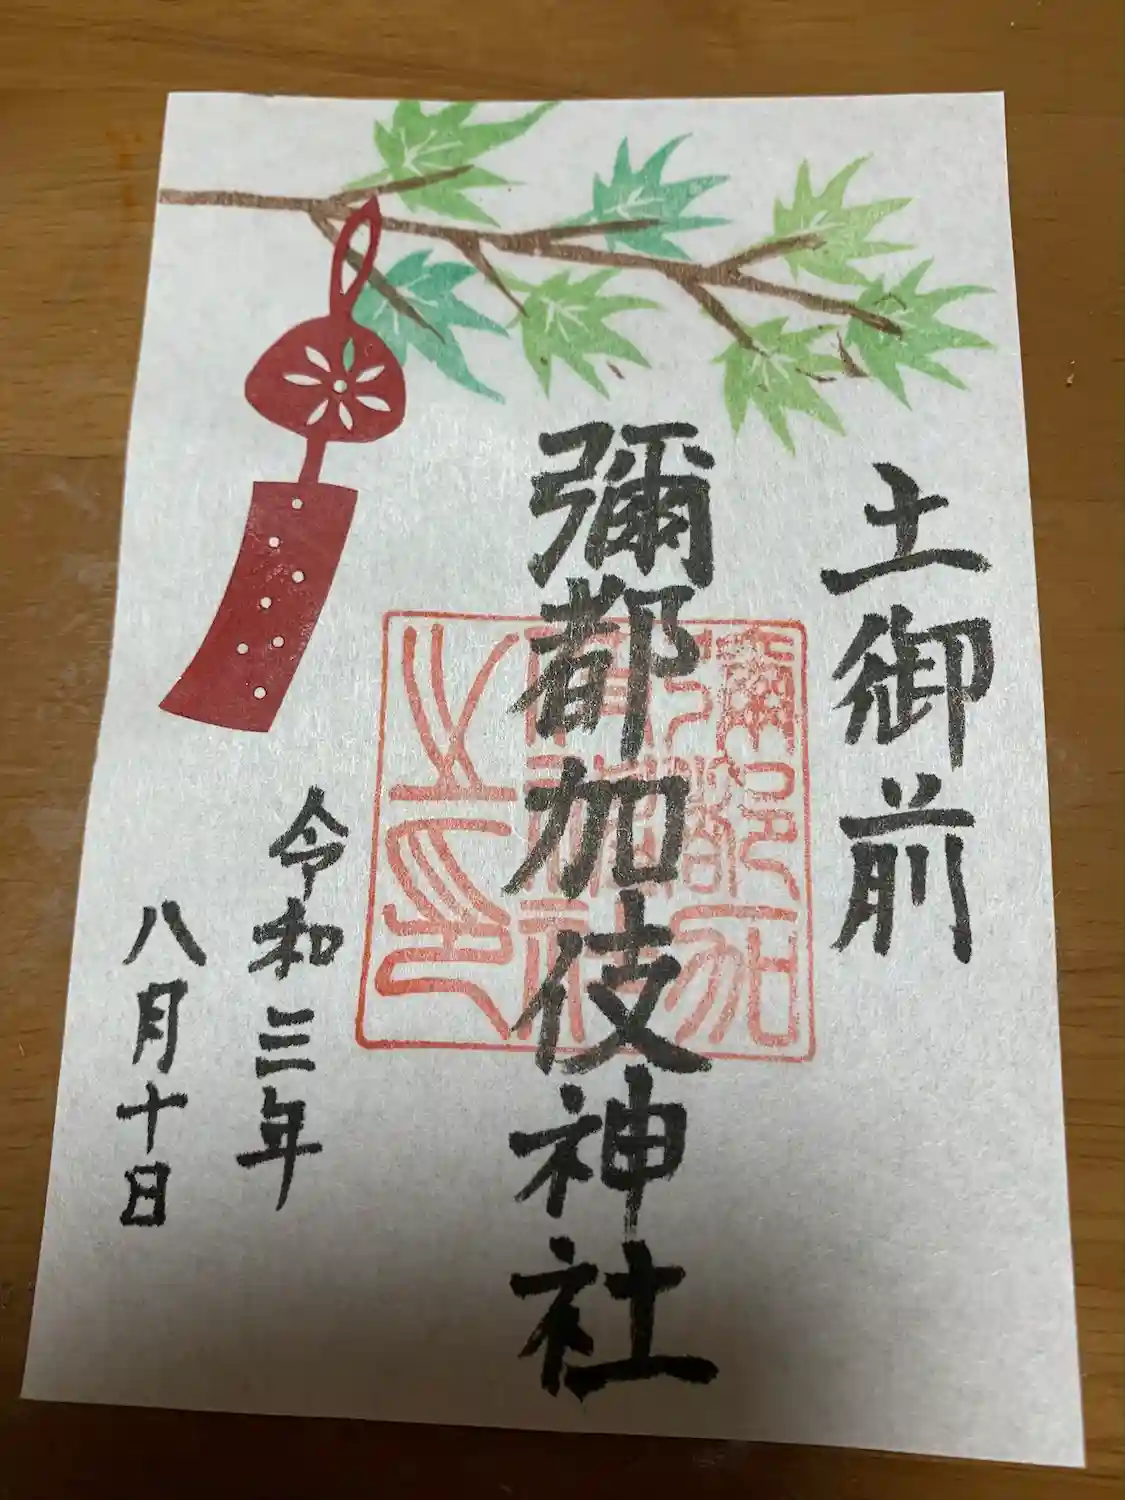 土御前
彌都加伎神社
令和三年
八月十日